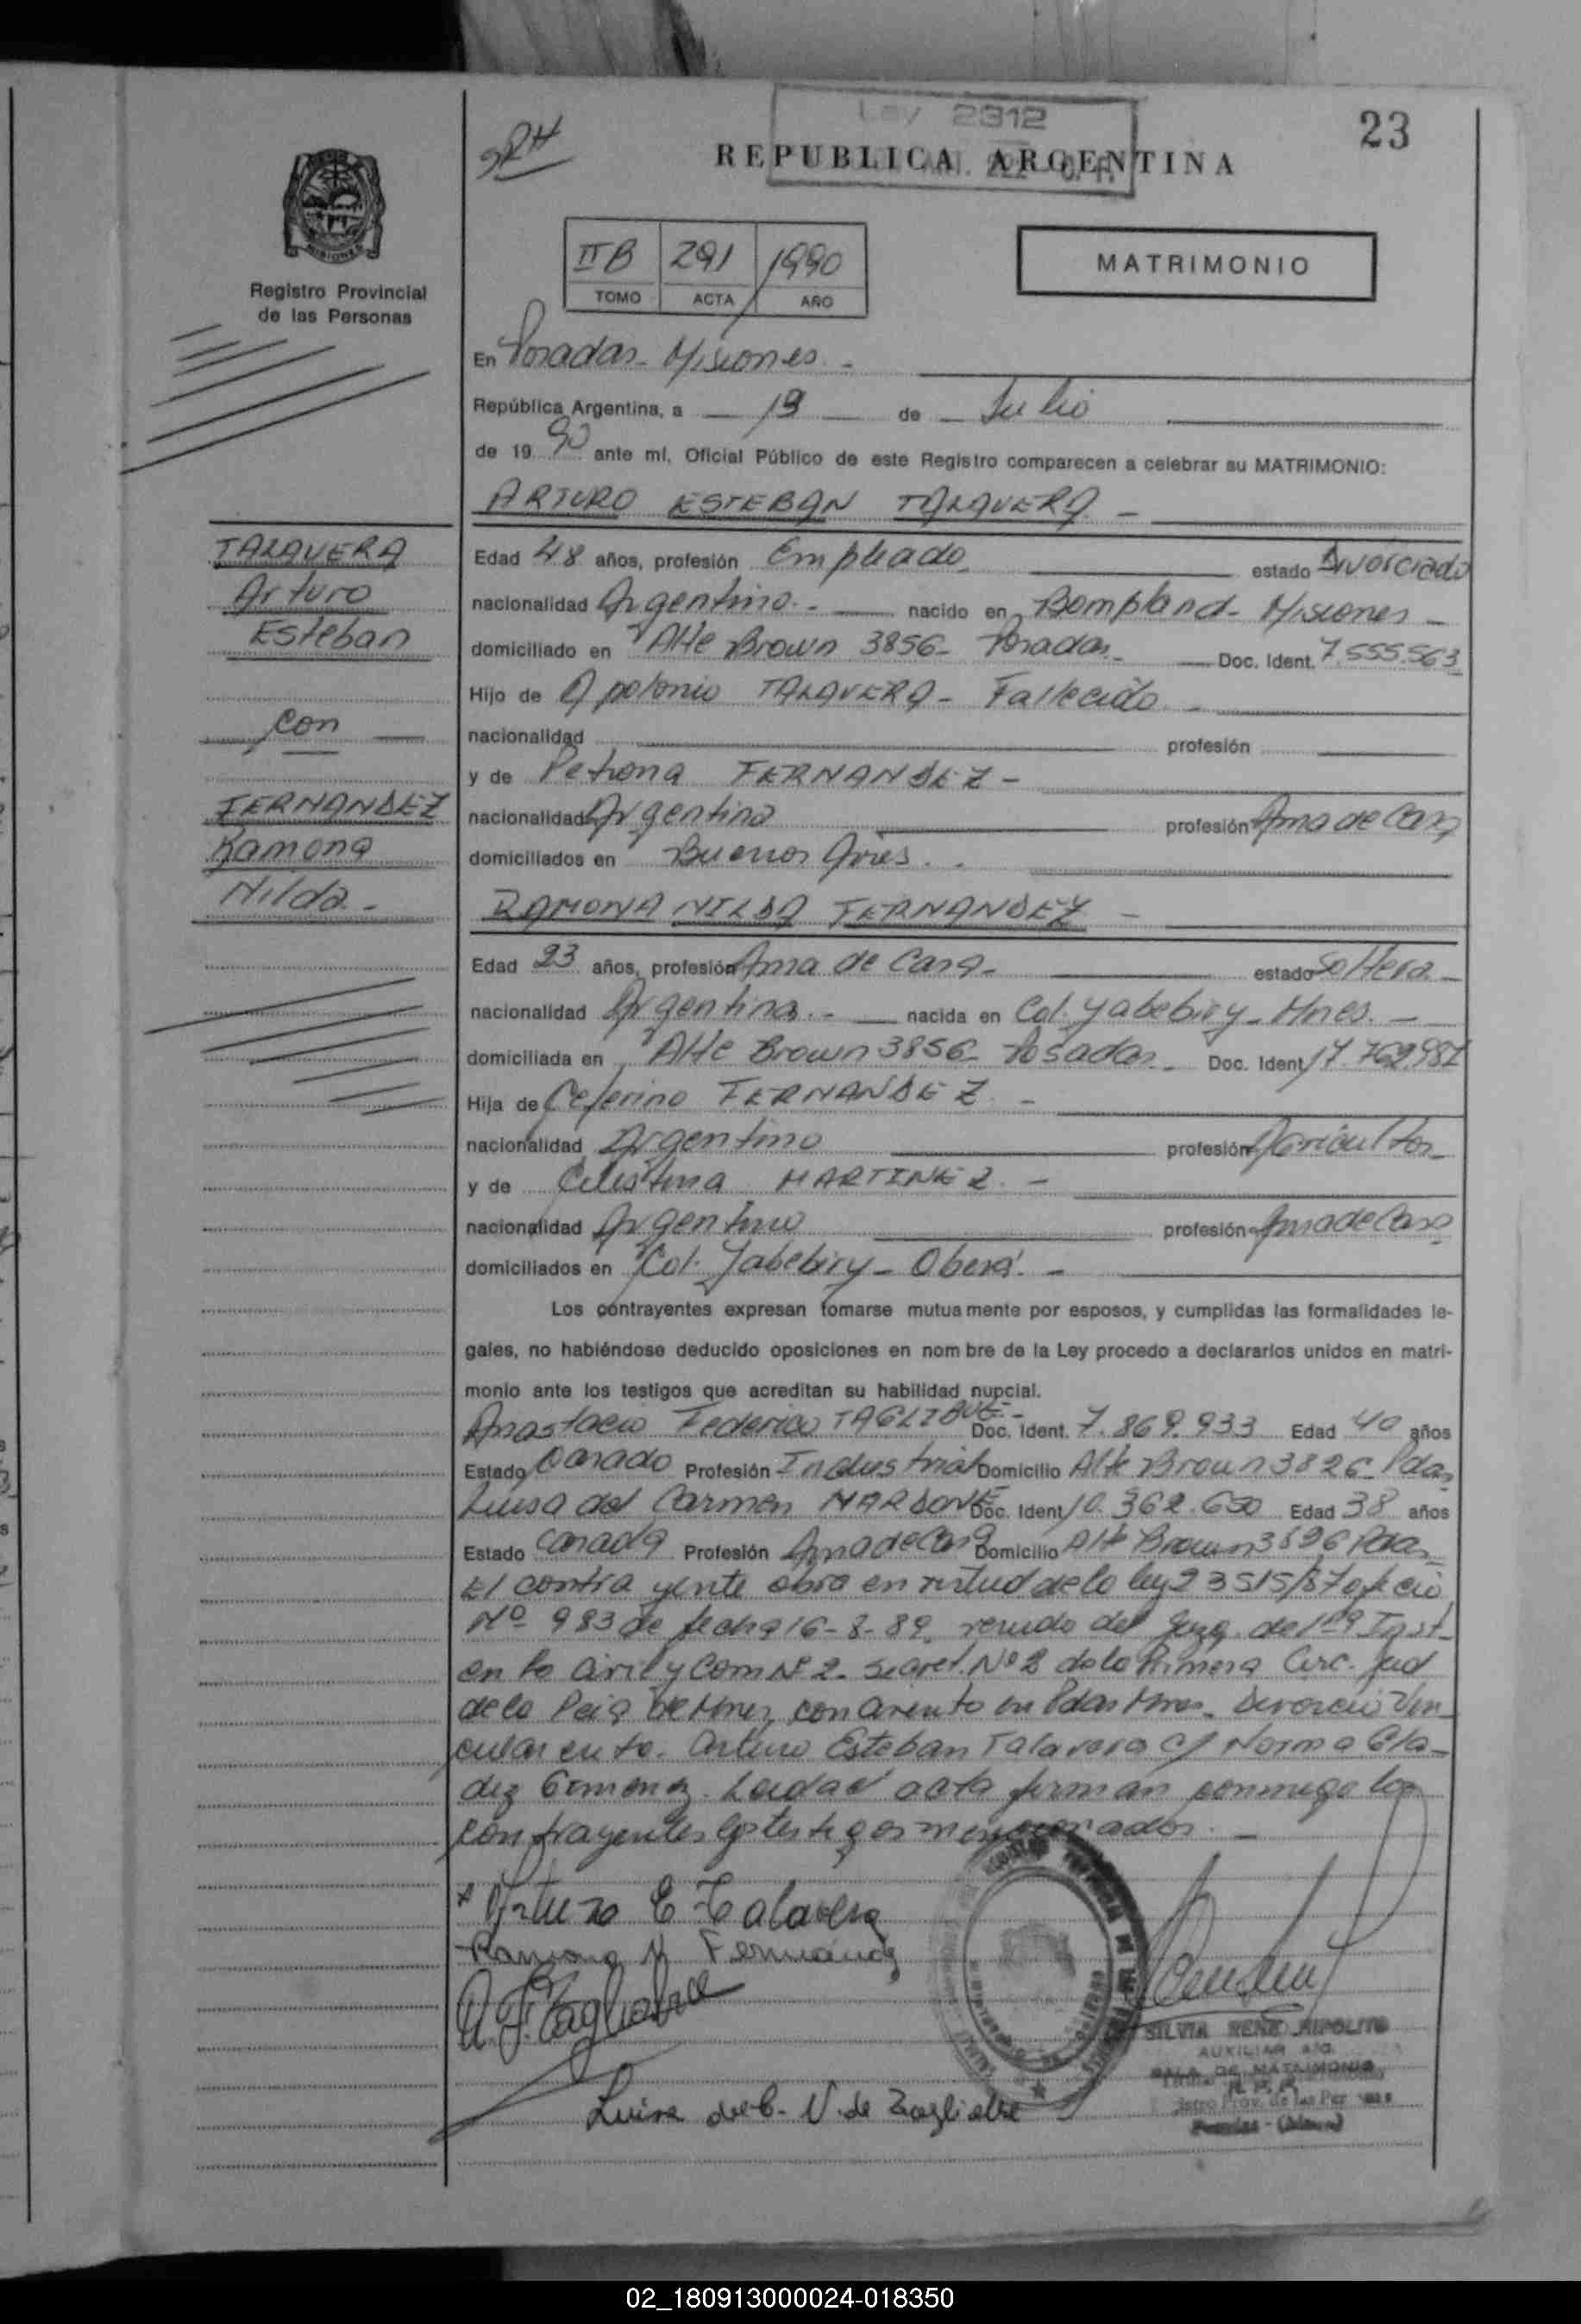 23
SRH
Ley 2312
REPUBLICA ARGENTINA
IIB 291 1990
TOMO ACTA AÑO
MATRIMONIO
MISIONES
Registro Provincial
de las Personas
En Posadas - Misiones -
República Argentina, a 19 de Julio
de 19 90 ante mí, Oficial Público de este Registro comparecen a celebrar su MATRIMONIO:
ARTURO ESTEBAN TALAVERA -
TALAVERA
Arturo
Esteban
con
FERNANDEZ
Ramona
Nilda -
Edad 48 años, profesión Empleado estado Divorciado
nacionalidad Argentino - nacido en Bompland - Misiones -
domiciliado en Alte Brown 3856 - Posadas - Doc. Ident. 7.555.563
Hijo de Apolonio TALAVERA - Fallecido -
nacionalidad profesión
y de Petrona FERNANDEZ -
nacionalidad Argentina profesión Ama de Casa
domiciliados en Buenos Aires.
RAMONA NILDA FERNANDEZ -
Edad 23 años, profesión Ama de Casa - estado Soltera -
nacionalidad Argentina - nacida en Col. Yabebiry - Mnes. -
domiciliada en Alte Brown 3856 - Posadas - Doc. Ident.
Hija de Ceferino FERNANDEZ -
nacionalidad Argentino profesión Agricultor
y de Celestina MARTINEZ. -
nacionalidad Argentina profesión Ama de Casa
domiciliados en Col. Yabebiry - Oberá. -
Los contrayentes expresan tomarse mutuamente por esposos, y cumplidas las formalidades le-
gales, no habiéndose deducido oposiciones en nombre de la Ley procedo a declararlos unidos en matri-
monio ante los testigos que acreditan su habilidad nupcial.
Anastacio Federico Doc. Ident. 7.869.933 Edad 40 años
Estado Casado Profesión Industrial Domicilio Alte Brown 3826 - Pdas
Luisa del Carmen Doc. Ident. 10.362.650 Edad 38 años
Estado Casada Profesión Ama de Casa Domicilio Alte Brown 3826 Pdas
El contrayente obra en virtud de la ley 23515/87 oficio
Nº 983 de fecha 16-8-89, del Juzg. de 1ra Inst
en lo Civil y Com Nº 2 - Secret. Nº 2 de la Primera Circ. Jud
de la Pcia de Mnes, con asiento en Pdas Mnes. Divorcio Vin-
cular en to. Arturo Esteban Talavera c/ Norma Gla-
diz Gimenez. Leida el acta firman conmigo los
contrayentes y testigos mencionados. -
Arturo E Talavera
Ramona N Fernández
A. F. Tagliabue
Luisa del C. N. de Tagliabue
SILVIA RENE HIPOLITO
AUXILIAR
SALA DE MATRIMONIO
02_180913000024-018350